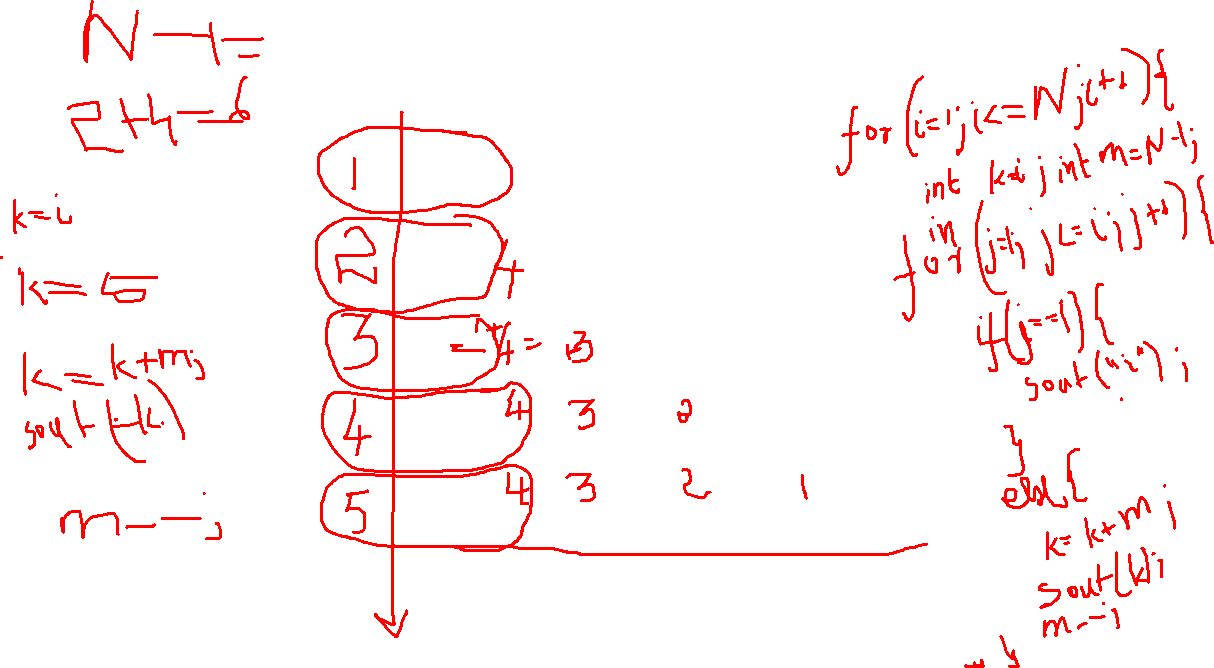 N-1=
2+4=6
k=i
k=5
k=k+m;
sout(k)
m--;
1
2 +
3 -4= 3
4 4 3 2
5 4 3 2 1
for(i=1;i<=N;i++){
int k=i; int m=N-1;
for(int j=1; j<=i; j++){
if(j==1){
sout("i");
}
else{
k=k+m;
sout(k);
m--;
}